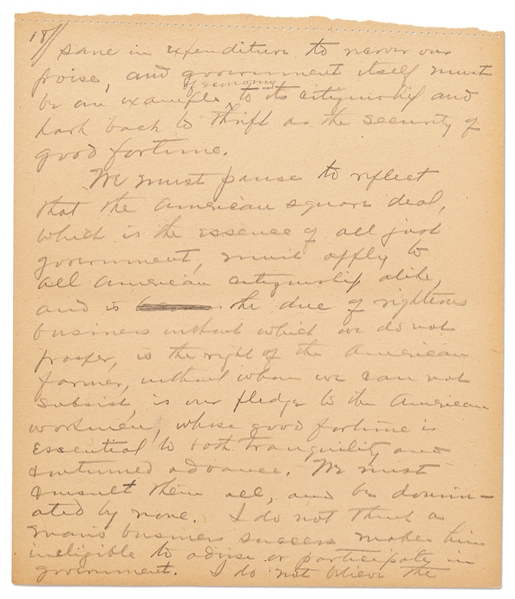 18/
sane in expenditure to recover our
poise, and government itself must
of economy
be an example to its citizenship and
hark back to thrift as the security of
good fortune.
We must pause to reflect
that the American square deal,
which is the essence of all just
government, must apply to
all American citizenship alike,
and is the due of righteous
business without which we do not
prosper, is the right of the American
farmer, without whom we can not
subsist, is our pledge to the American
workmen, whose good fortune is
essential to both tranquility and
continued advance. We must
consult them all, and be domin-
ated by none. I do not think a
man's business success makes him
ineligible to advise or participate in
government. I do not believe the